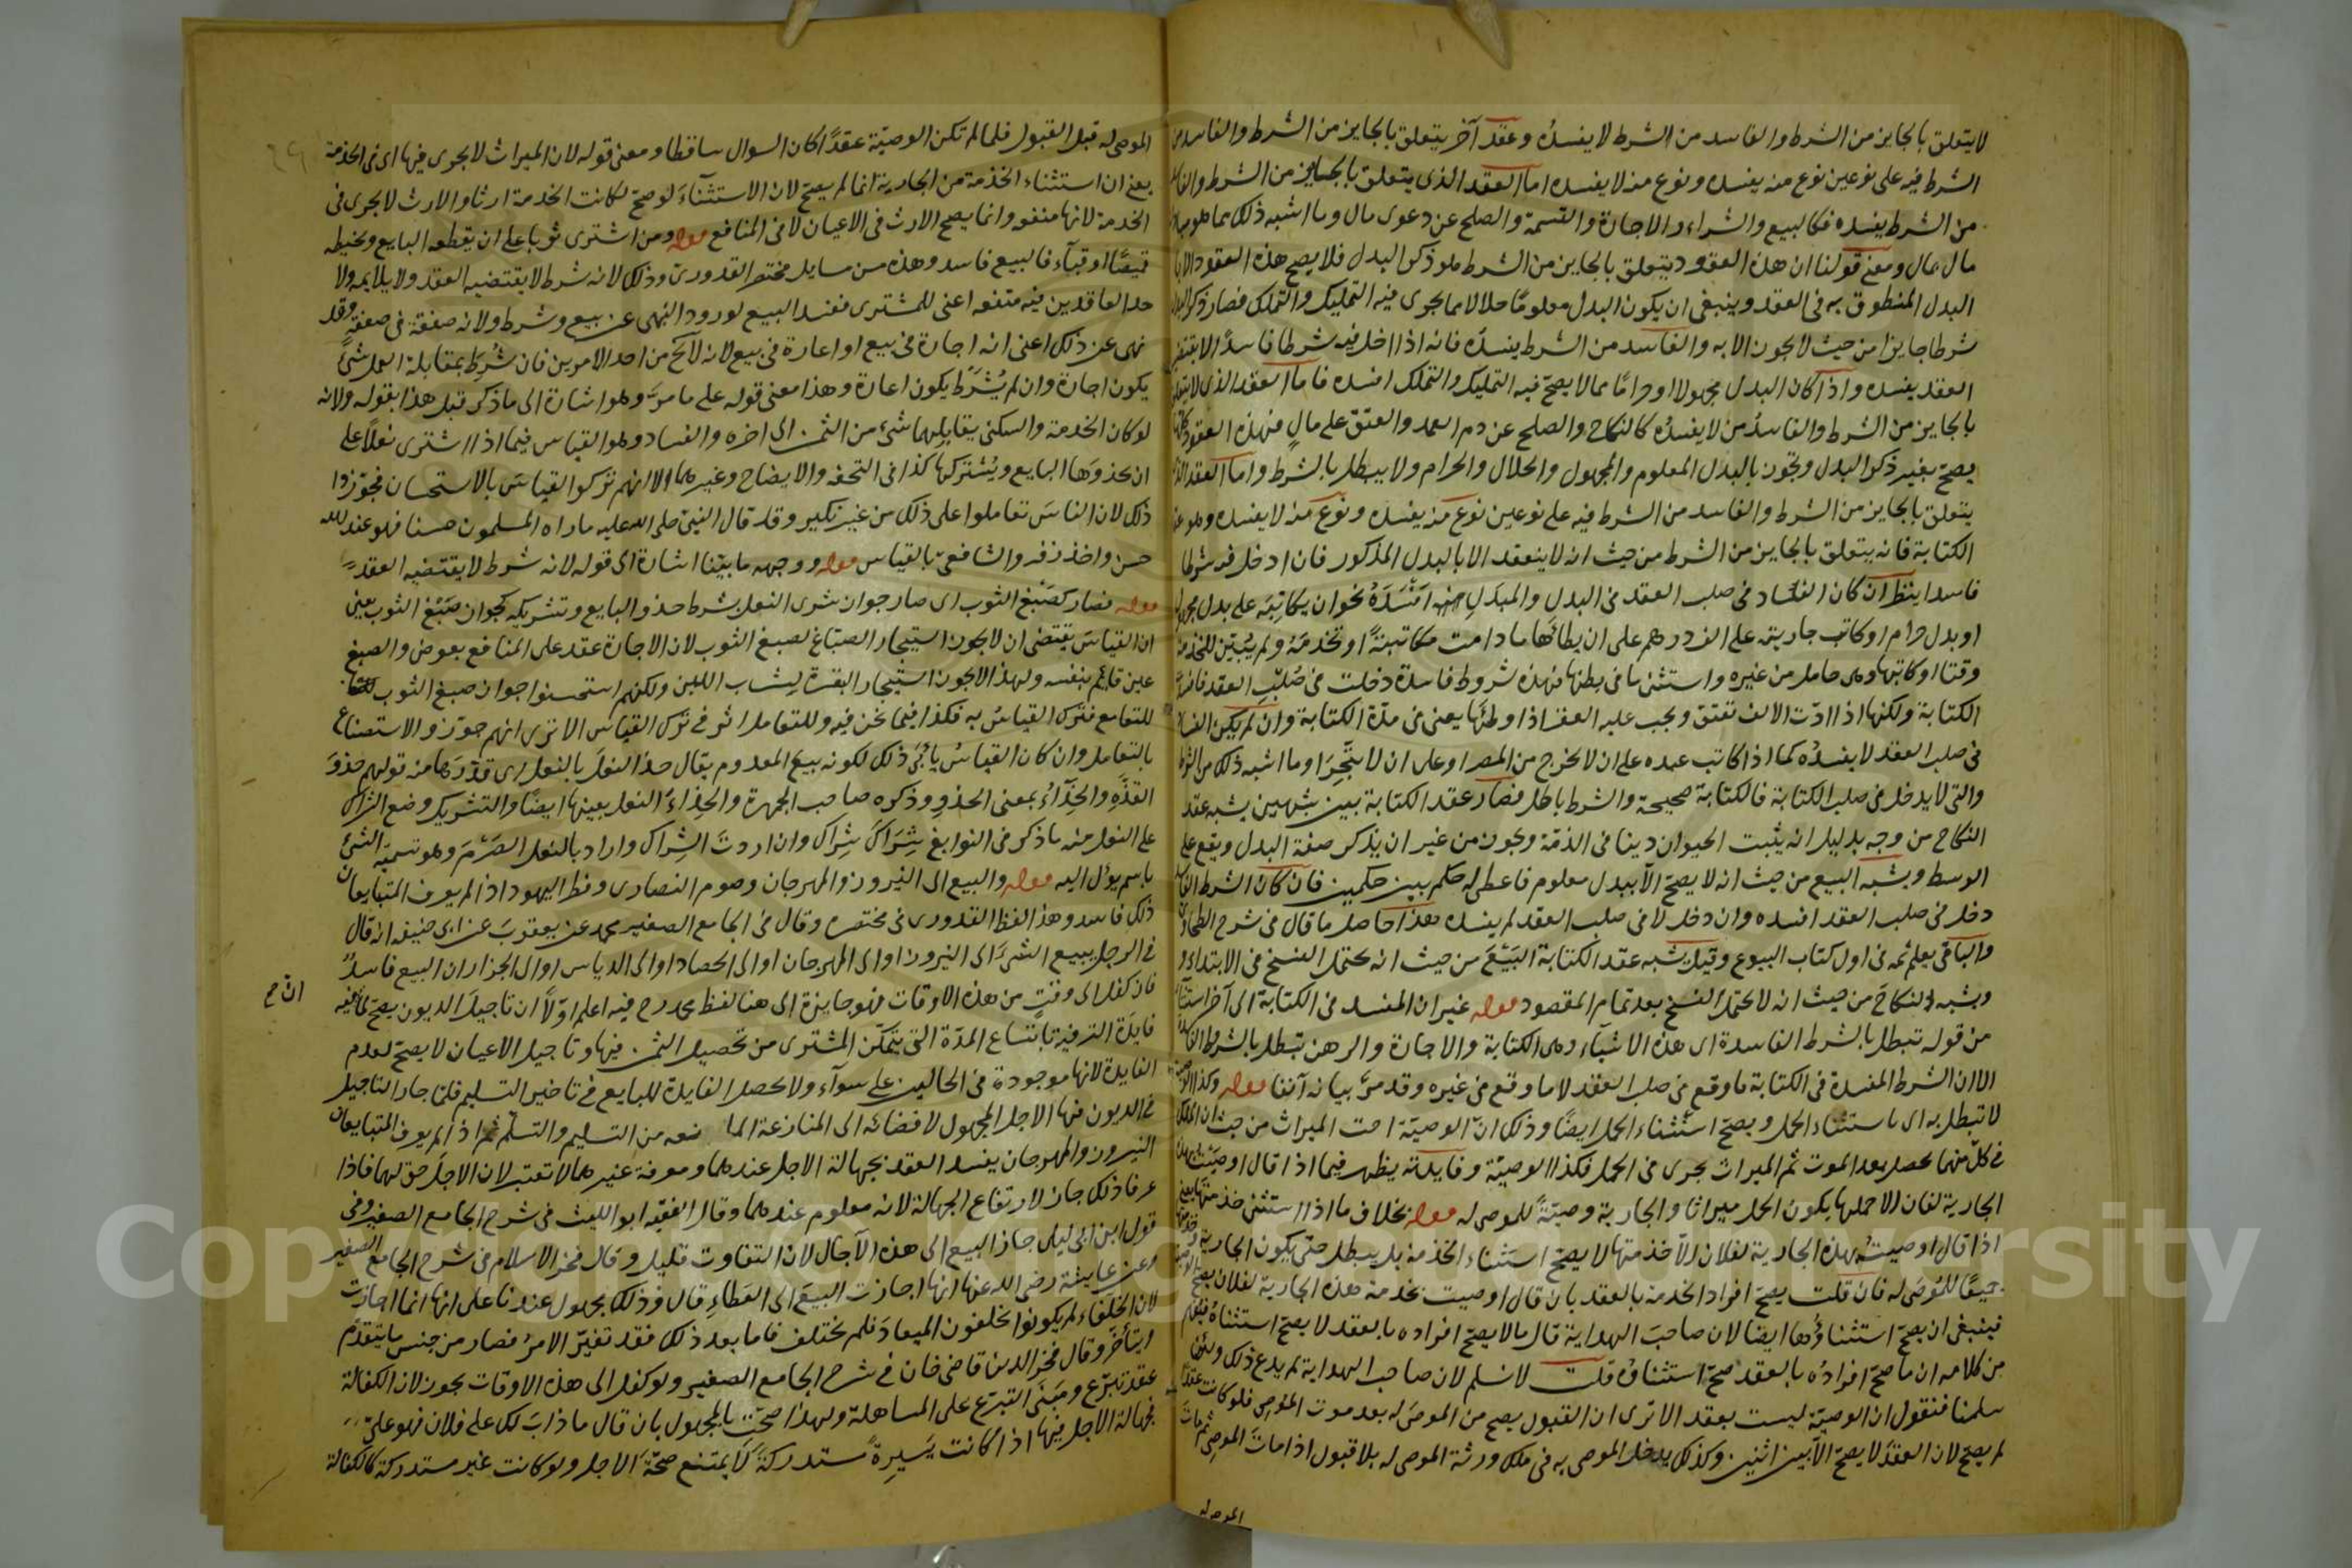 لا يتعلق بالجايز من الشرط والفاسد من الشرط لا يفسده وعقد آخر يتعلق بالجايز من الشرط والفاسد من
الشرط فيه على نوعين نوع منه يفسده ونوع منه لا يفسده اما العقد الذى يتعلق بالجايز من الشرط والفاسد
من الشرط يفسده فكالبيع والشراء والاجارة والقسمة والصلح عن دعوى مال وما اشبه ذلك مما هو مبادلة
مال بمال ومعنى قولنا ان هذه العقود يتعلق بالجايز من الشرط هو ذكر البدل فلا يصح هذه العقود الا با
البدل المنطوق به فى العقد وينبغى ان يكون البدل معلومًا حلالا مما يجرى فيه التمليك والتملك فصار ذكر البدل
شرطا جايزا من حيث لا يجوز الا به والفاسد من الشرط يفسده فانه اذا ادخل فيه شرطا فاسدًا لا يقتضيه
العقد يفسده واذا كان البدل مجهولا او حرامًا مما لا يصح فيه التمليك والتملك افسده فاما العقد الذى لا يتعلق
بالجايز من الشرط والفاسد من لا يفسده كالنكاح والصلح عن دم العمد والعتق على مال فهذه العقود كلها
يصح بغير ذكر البدل وتجوز بالبدل المعلوم والمجهول والحلال والحرام ولا يبطل بالشرط واما العقد الذى
يتعلق بالجايز من الشرط والفاسد من الشرط فيه على نوعين نوع منه يفسده ونوع منه لا يفسده وهو عقد
الكتابة فانه يتعلق بالجايز من الشرط من حيث انه لا ينعقد الا بالبدل المذكور فان ادخل فيه شرطا
فاسدا ينظر ان كان الفساد فى صلب العقد فى البدل والمبدل افسده نحو ان يكاتبه على بدل مجهول
او بدل حرام او كاتب جاريته على الف درهم على ان يطائها ما دامت مكاتبة او تخدمه ولم يبين للخدمة
وقتا او كاتبها وهى حامل من غيره واستثنى ما فى بطنها فهذه شروط فاسدة دخلت فى صلب العقد فافسدت
الكتابة ولكنها اذا ادت الالف تعتق ويجب عليه العقر اذا وطئها يعنى فى مدة الكتابة وان لم يكن الفساد
فى صلب العقد لا يفسده كما اذا كاتب عبده على ان لا يخرج من المصر او على ان لا يتجر او ما اشبه ذلك من الشرائط
والتى لا يدخل فى صلب الكتابة فالكتابة صحيحة والشرط باطل فصار عقد الكتابة بين شبهين يشبه عقد
النكاح من وجه بدليل انه يثبت الحيوان دينا فى الذمة ويجوز من غير ان يذكر صفة البدل ويقع على
الوسط ويشبه البيع من حيث انه لا يصح الا ببدل معلوم فاعطى له حكم بين حكمين فان كان الشرط الفاسد
دخل فى صلب العقد افسده وان دخل لا فى صلب العقد لم يفسده هذا حاصل ما قال فى شرح الطحاوى
والباقى يعلم ثمه فى اول كتاب البيوع وقيل يشبه عقد الكتابة البيع من حيث انه يحتمل الفسخ فى الابتداء و
ويشبه النكاح من حيث انه لا يحتمل الفسخ بعد تمام المقصود قوله غير ان المفسد فى الكتابة الى آخر استثناء
من قوله تبطل بالشرط الفاسدة اى هذه الاشياء وهى الكتابة والاجارة والرهن تبطل بالشرط الفاسدة
الا ان الشرط المفسدة فى الكتابة ما وقع فى صلب العقد لا ما وقع فى غيره وقد مر بيانه آنفا قوله وكذا الوصية
لا تبطل به اى باستثناء الحمل ويصح استثناء الحمل ايضًا وذلك ان الوصية اخت الميراث من حيث ان الملك
فى كل منهما يحصل بعد الموت ثم الميراث يجرى فى الحمل فكذا الوصية وفايدته يظهر فيما اذا قال اوصيت بهذه
الجارية لفلان الا حملها يكون الحمل ميراثا والجارية وصية للموصى له قوله بخلاف ما اذا استثنى خدمتها يعنى
اذا قال اوصيت بهذه الجارية لفلان الا خدمتها لا يصح استثناء الخدمة بل يبطل حتى يكون الجارية وخدمتها
جميعًا للموصى له فان قلت يصح افراد الخدمة بالعقد بان قال اوصيت بخدمة هذه الجارية لفلان يصح الوصية
فينبغى ان يصح استثناؤها ايضا لان صاحب الهداية قال ما لا يصح افراده بالعقد لا يصح استثناؤه فيفهم
من كلامه ان ما صح افراده بالعقد صح استثناؤه قلت لا نسلم لان صاحب الهداية لم يدع ذلك ولئن
سلمنا فنقول ان الوصية ليست بعقد الا ترى ان القبول يصح من الموصى له بعد موت الموصى فلو كانت عقدًا
لم يصح لان العقد لا يصح الا بين اثنين وكذلك يدخل الموصى به فى ملك ورثة الموصى له بلا قبول اذا مات الموصى ثم مات
الموصى له
الموصى له قبل القبول فلما لم تكن الوصية عقدًا كان السوال ساقطا ومعنى قوله لان الميراث لا يجرى فيها اى فى الخدمة
يعنى ان استثناء الخدمة من الجارية انما لم يصح لان الاستثناء لو صح لكانت الخدمة ارثا والارث لا يجرى فى
الخدمة لانها منفعة وانما يصح الارث فى الاعيان لا فى المنافع قوله ومن اشترى ثوبا على ان يقطعه البايع ويخيطه
قميصًا او قباء فالبيع فاسد وهذه من مسايل مختصر القدورى وذلك لانه شرط لا يقتضيه العقد ولا يلايمه ولا
حد العاقدين فيه منفعة اعنى للمشترى ففسد البيع لورود النهى عن بيع وشرط ولانه صفقة فى صفقة وقد
نهى عن ذلك اعنى انه اجارة فى بيع او اعارة فى بيع لانه لا يخ من احد الامرين فان شرط بمقابلة العمل شئ
يكون اجارة وان لم يشرط يكون اعارة وهذا معنى قوله على ما مر وهو اشارة الى ما ذكر قبل هذا بقوله ولانه
لو كان الخدمة والسكنى يقابلهما شئ من الثمن الى اخره والفساد وهو القياس فيما اذا اشترى نعلًا على
ان يحذوها البايع ويشركها كذا فى التحفة والايضاح وغيرهما الا انهم تركوا القياس بالاستحسان فجوزوا
ذلك لان الناس تعاملوا على ذلك من غير نكير وقد قال النبى صلى الله عليه ماراه المسلمون حسنا فهو عند الله
حسن واخذ زفر والشافعى بالقياس قوله ووجهه ما بينا اشارة الى قوله لانه شرط لا يقتضيه العقد
قوله فصار كصبغ الثوب اى صار جواز شرى النعل بشرط حذو البايع وتشريكه كجواز صبغ الثوب يعنى
ان القياس يقتضى ان لا يجوز استيجار الصباغ لصبغ الثوب لان الاجارة عقد على المنافع بعوض والصبغ
عين قائم بنفسه ولهذا لا يجوز استيجار البقرة ليشرب اللبن ولكنهم استحسنوا جواز صبغ الثوب
للتعامل فترك القياس به فكذا فيما نحن فيه وللتعامل اثر فى ترك القياس الا ترى انهم جوزوا الاستصناع
بالتعامل وان كان القياس يابى ذلك لكونه بيع المعدوم يقال حذا النعل بالنعل اى قدرها من قولهم حذو
القذة والحذاء بمعنى الحذو وذكره صاحب الجمهرة والحذاء النعل بعينها ايضًا والتشريك وضع الشراك
على النعل منه ما ذكر فى النوابغ شراك شراك وان اردت الشراك واراد بالنعل الصرم وهو تسمية الشئ
باسم يؤل اليه قوله والبيع الى النيروز والمهرجان وصوم النصارى وفطر اليهود اذا لم يعرف المتبايعان
ذلك فاسد وهذا لفظ القدورى فى مختصره وقال فى الجامع الصغير محمد عن يعقوب عن ابى حنيفه انه قال
فى الرجل يبيع الشئ الى النيروز او الى المهرجان او الى الحصاد او الى الدياس او الى الجزاز ان البيع فاسد
فان كفل الى وقت من هذه الاوقات فهو جايز الى هنا لفظ محمد رح فيه اعلم اولًا ان تاجيل الديون يصح لما فيه
فايدة الترفية باتساع المدة التى يتمكن المشترى من تحصيل الثمن فيها وتاجيل الاعيان لا يصح لعدم
الفايدة لانها موجودة فى الحالين على سواء ولا يحصل الفايدة للبايع فى تاخير التسليم فلما جاز التاجيل
فى الديون فسد الاجل المجهول لافضائه الى المنازعة المانعه من التسليم والتسلم ثم اذا لم يعرف المتبايعان
النيروز والمهرجان يفسد العقد بجهالة الاجل عندهما ومعرفة غيرهما لا تعتبر لان الاجل حق لهما فاذا
عرفا ذلك جاز لارتفاع الجهالة لانه معلوم عندهما وقال الفقيه ابو الليث فى شرح الجامع الصغير وفى
قول ابن ابى ليلى جاز البيع الى هذه الآجال لان التفاوت قليل وقال فخر الاسلام فى شرح الجامع الصغير
وعن عايشة رضى الله عنها انها اجازت البيع الى العطاء قال وذلك مجهول عندنا على انها انما اجازت
لان الخلفاء لم يكونوا يخلفون الميعاد فلم يختلف فاما بعد ذلك فقد تغير الامر فصار من جنس ما يتقدم
ويتأخر وقال فخر الدين قاضى خان فى شرح الجامع الصغير ولو كفل الى هذه الاوقات يجوز لان الكفالة
عقد تبرع ومبنى التبرع على المساهلة ولهذا صحت بالمجهول بان قال ما ذاب لك على فلان فهو على
فجهالة الاجل فيها اذا كانت يسيرة مستدركة لا يمتنع صحة الاجل ولو كانت غير مستدركة كالكفالة
Copyright © King Saud University